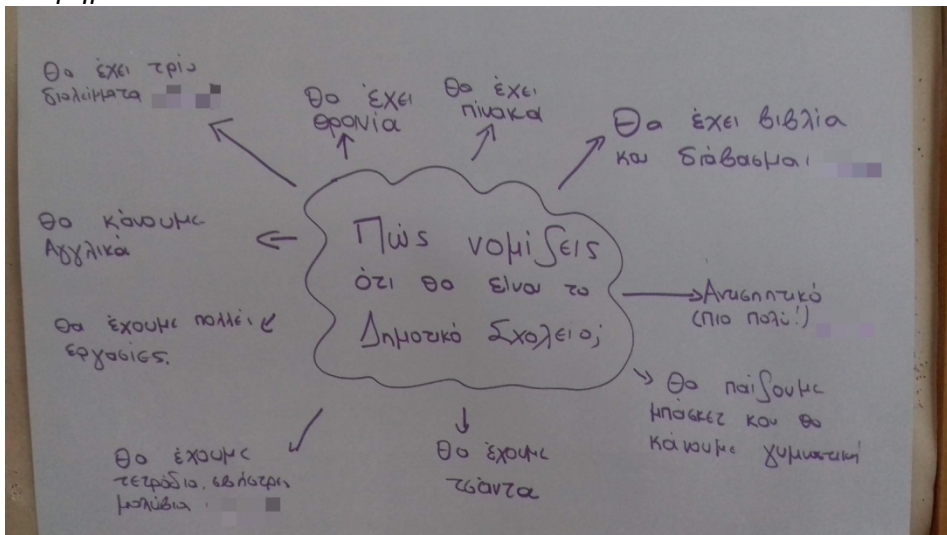 Θα έχει τρία
διαλείμματα
Θα έχει
θρανία
Θα έχει
πίνακα
Θα έχει βιβλία
και διάβασμα.
Θα κάνουμε
Αγγλικά
Πώς νομίζεις
ότι θα είναι το
Δημοτικό Σχολείο;
Αντισηπτικό
(πιο πολύ!)
Θα έχουμε πολλές
εργασίες.
Θα παίζουμε
μπάσκετ και θα
κάνουμε γυμναστική
Θα έχουμε
τετράδια, σβήστρες
μολύβια
Θα έχουμε
τσάντα